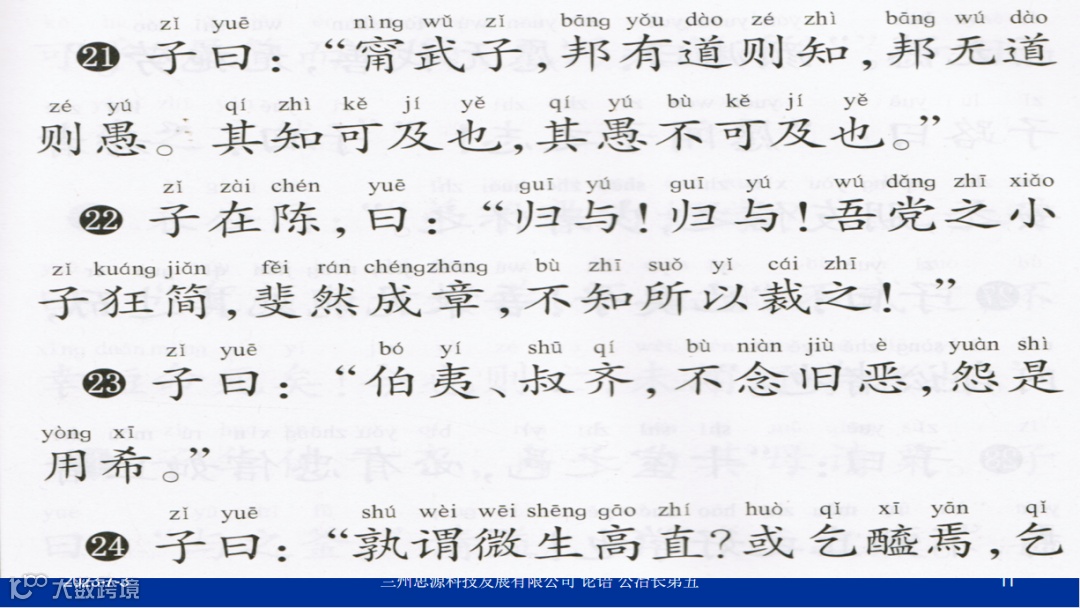 zǐ yuē nìng wǔ zǐ bāng yǒu dào zé zhì bāng wú dào
21 子曰：“甯武子，邦有道则知，邦无道
zé yú qí zhì kě jí yě qí yú bù kě jí yě
则愚。其知可及也，其愚不可及也。”
zǐ zài chén yuē guī yú guī yú wú dǎng zhī xiǎo
22 子在陈，曰：“归与！归与！吾党之小
zǐ kuáng jiǎn fěi rán chéng zhāng bù zhī suǒ yǐ cái zhī
子狂简，斐然成章，不知所以裁之！”
zǐ yuē bó yí shū qí bù niàn jiù è yuàn shì
23 子曰：“伯夷、叔齐，不念旧恶，怨是
yòng xī
用希。”
zǐ yuē shú wèi wēi shēng gāo zhí huò qǐ xī yān qǐ
24 子曰：“孰谓微生高直？或乞醯焉，乞
兰州思源科技发展有限公司 论语 公冶长第五
11
大数跨境